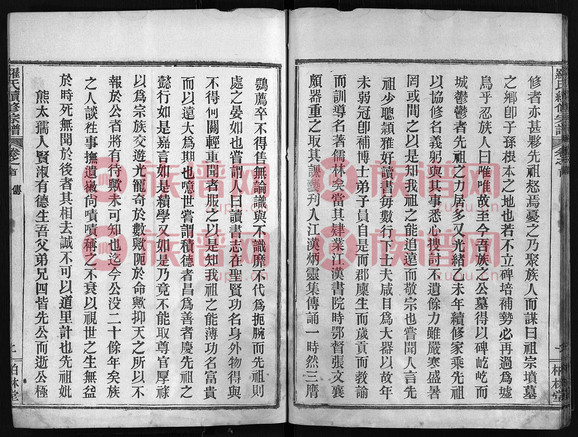 修者亦甚夥先祖怒焉憂之乃聚族人而謀曰祖宗墳墓
之鄉卽子孫根本之地也若不立碑培補勢必再過爲墟
烏乎忍族人曰唯唯故至今吾族之公墓得以碑屹屹而
城鬱鬱者先祖之力居多又光緒乙未年續修家乘先祖
以協修名義躬與其事悉心搜討不遺餘力雖嚴寒盛暑
或問或間之以是知我祖之能追遠而敬宗也曾聞人言先
祖少聰頴雅好讀書每數行下士夫咸目爲大器以故年
未弱冠卽補博士弟子員自是而郡廩生而歲貢而教諭
而訓導名著儒林矣當其肄業江漢書院時鄂督張文襄
頗器重之取其課藝刋入江漢炳靈集傳誦一時然三膺
鶚薦卒不得售無論識與不識靡不代爲扼腕而先祖則
處之晏如也嘗謂人曰讀書志在聖賢功名身外物得與
不得何關輕重聞者服之以是知我祖之能薄功名富貴
而以遠大爲期也噫世嘗謂積德者昌爲善者慶先祖之
懿行如是嘉言如是積學又如是乃竟不能取尊官厚祿
以爲宗族交遊光寵奇於數歟阨於命歟抑天之所以不
報於公者將有待歟未可知也迄今公没二十餘年矣族
之人談往事撫遺徽尚嘖嘖稱之不衰以視世之生無益
於時死無聞於後者其相去誠不可以道里計也先祖妣
熊太孺人賢淑有德生吾父弟兄四皆先公而逝公極
羅氏續修宗譜
卷之首
傳
柏林堂